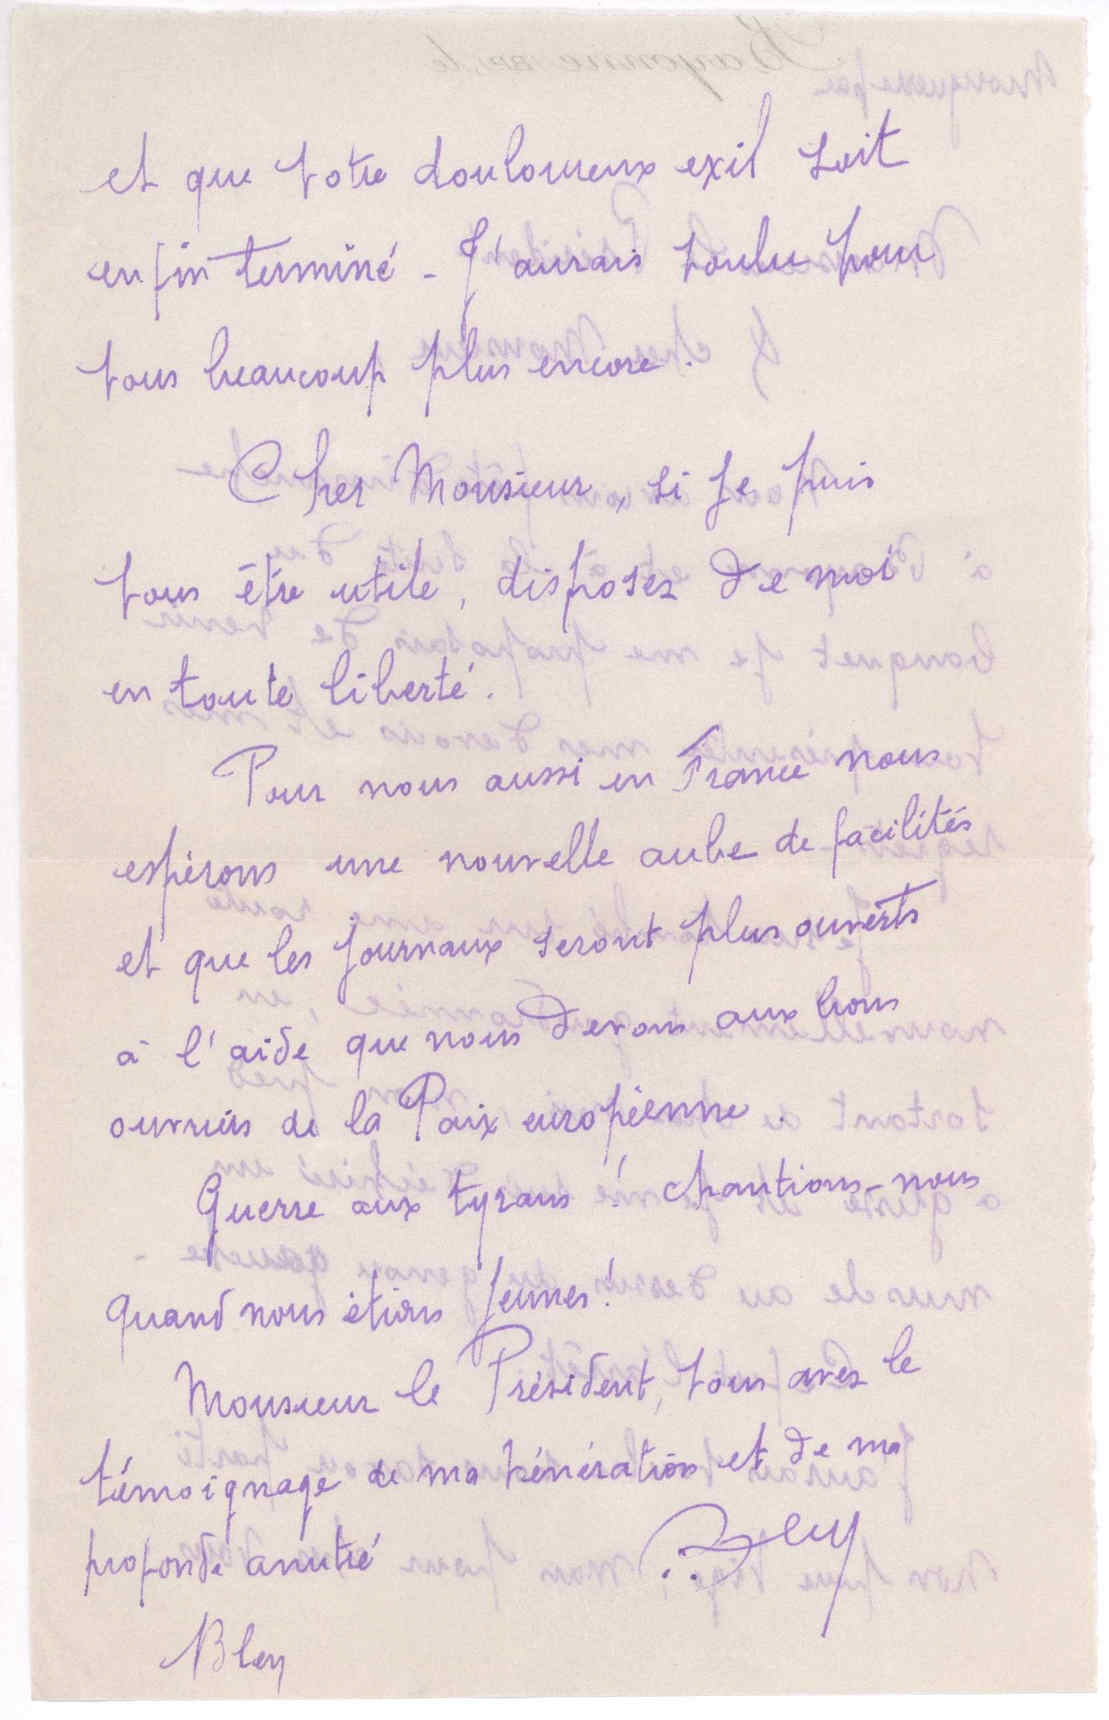 et que votre douloureux exil soit
enfin terminé - J'aurais voulu pour
vous beaucoup plus encore.
Cher Monsieur, si je puis
vous être utile, disposez de moi
en toute liberté.
Pour nous aussi en France nous
espérons une nouvelle aube de facilités
et que les journaux seront plus ouverts
à l'aide que nous devons aux bons
ouvriers de la Paix européenne.
Guerre aux tyrans ! chantions-nous
quand nous étions jeunes !
Monsieur le Président, vous avez le
témoignage de ma vénération et de ma
profonde amitié